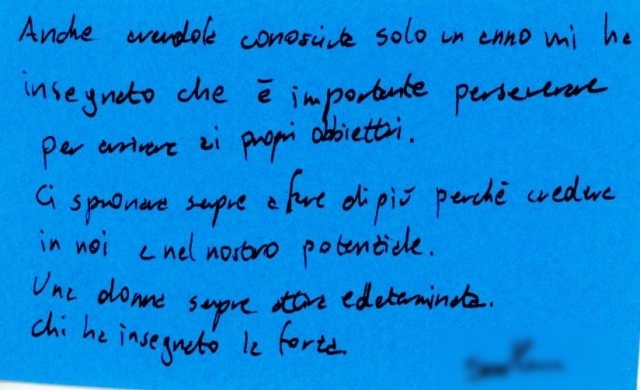 Anche avendola conosciuta solo un anno mi ha
insegnato che è importante perseverare
per arrivare ai propri obbiettivi.
Ci spronava sempre a fare di più perché credeva
in noi e nel nostro potenziale.
Una donna sempre attiva e determinata.
Chi ha insegnato la forza.